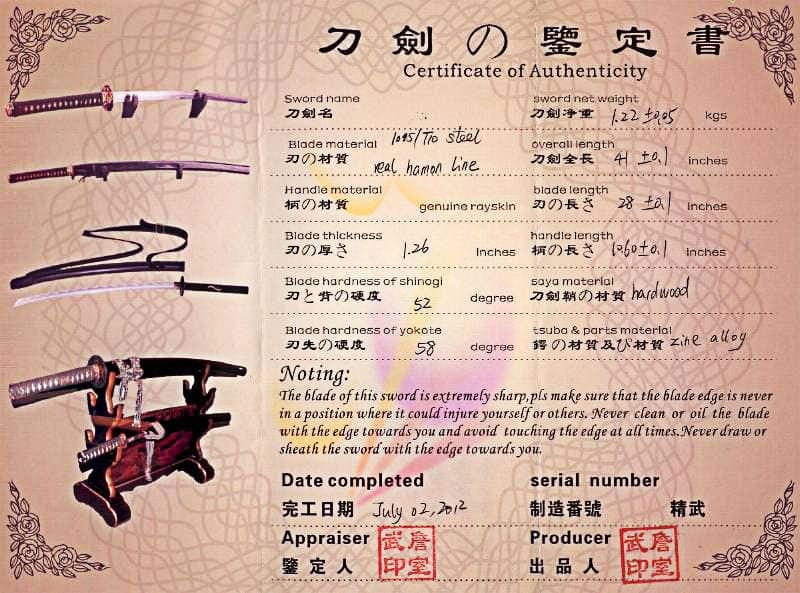 刀劍の鑒定書
Certificate of Authenticity
Sword name
刀劍名
sword net weight
刀劍淨重 1.22 ±0.05 kgs
Blade material 1095/T10 steel
刃の材質 real hamon line
overall length
刀劍全長 41 ±0.1 inches
Handle material
柄の材質 genuine rayskin
blade length
刃の長さ 28 ±0.1 inches
Blade thickness
刃の厚さ 1.26 inches
handle length
柄の長さ 10.60±0.1 inches
Blade hardness of shinogi
刃と背の硬度 52 degree
saya material
刀劍鞘の材質 hardwood
Blade hardness of yokote
刃先の硬度 58 degree
tsuba & parts material
鍔の材質及び材質 zinc alloy
Noting:
The blade of this sword is extremely sharp,pls make sure that the blade edge is never
in a position where it could injure yourself or others. Never clean or oil the blade
with the edge towards you and avoid touching the edge at all times.Never draw or
sheath the sword with the edge towards you.
Date completed
完工日期 July 02, 2012
serial number
制造番號 精武
Appraiser
鑒定人
武詹
印室
Producer
出品人
武詹
印室